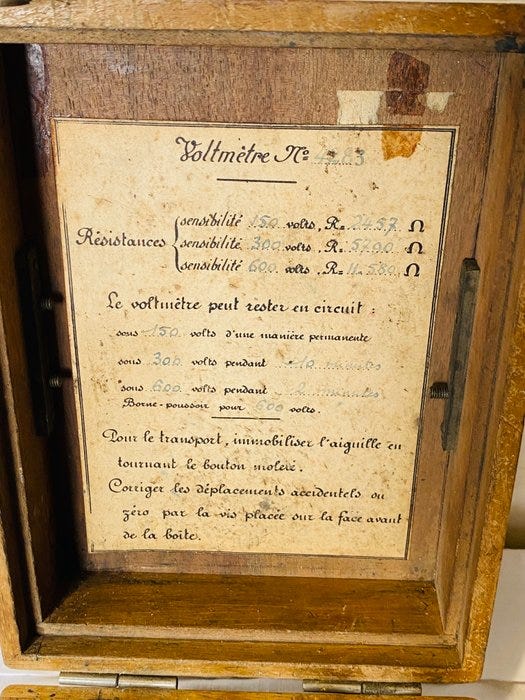 Voltmètre Nº 4283
Résistances
sensibilité 150 volts, R= 2457 Ω
sensibilité 300 volts, R= 5200 Ω
sensibilité 600 volts, R= 11.580 Ω
Le voltmètre peut rester en circuit :
sous 150 volts d'une manière permanente
sous 300 volts pendant 10 minutes
sous 600 volts pendant 2 minutes
Borne-poussoir pour 600 volts.
Pour le transport, immobiliser l'aiguille en
tournant le bouton moleré.
Corriger les déplacements accidentels au
zéro par la vis placée sur la face avant
de la boîte.